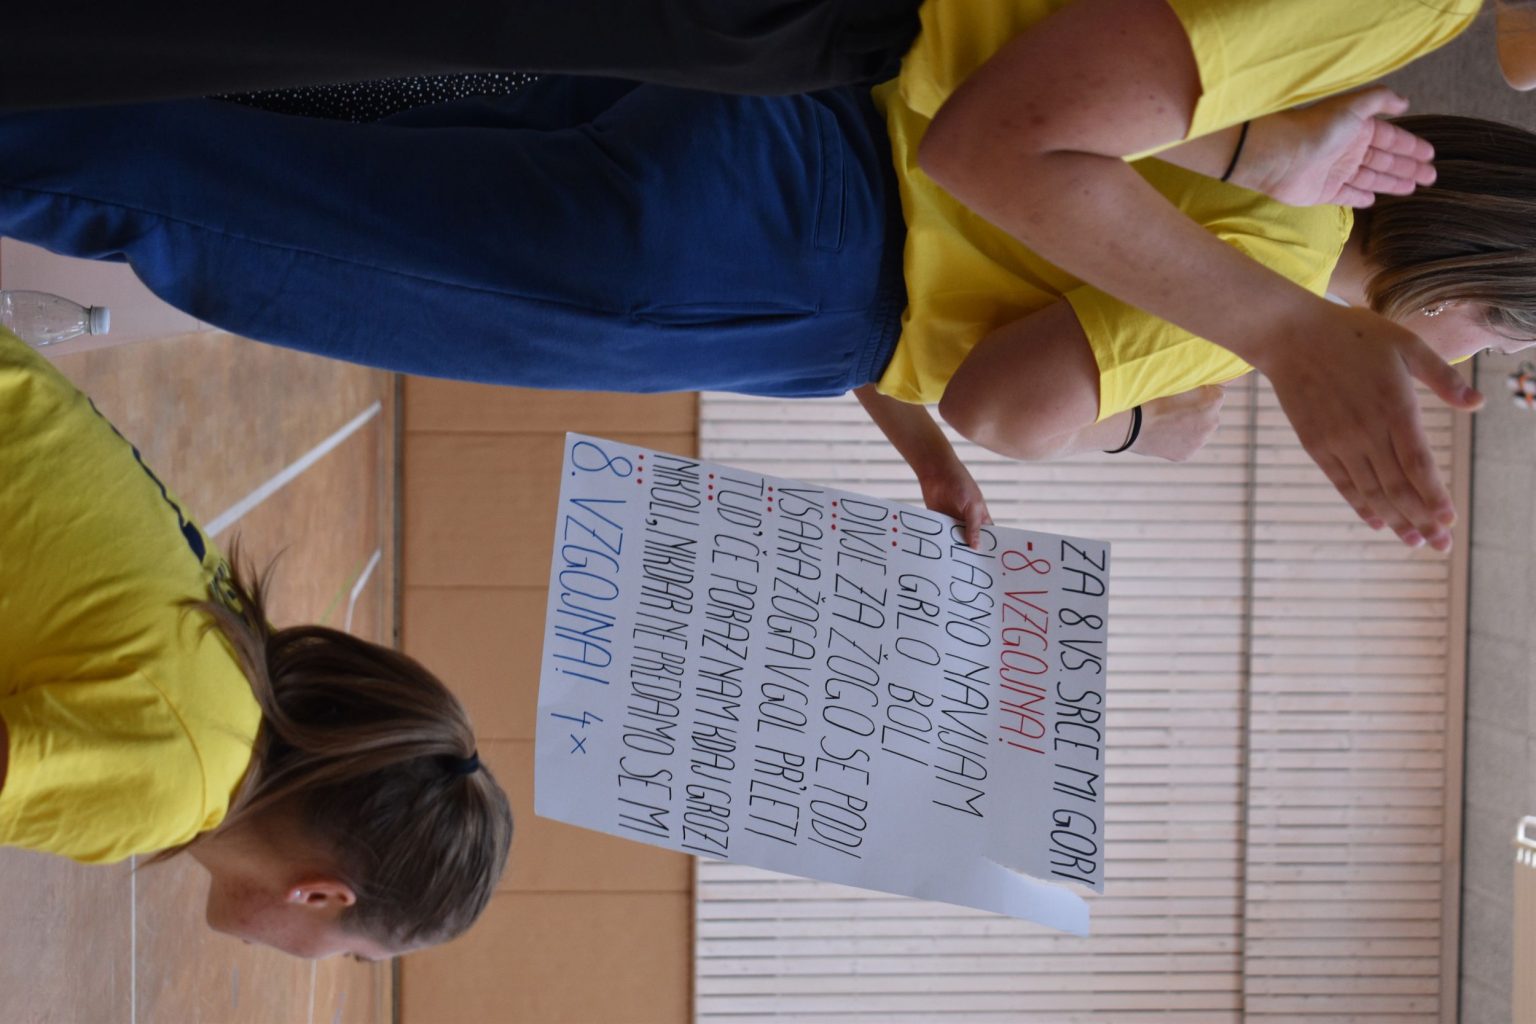 ZA 8VS SRCE MI GORI
-8. VZGOJNA!
GLASNO NAVIJAM
... DA GRLO BOLI
... DIVJE ZA ŽOGO SE PODI
... VSAKA ŽOGA V GOL PR'LETI
... TUD' ČE PORAZ NAM KDAJ GROZI
... NIKOLI, NIKDAR NE PREDAMO SE MI
8. VZGOJNA! 4x